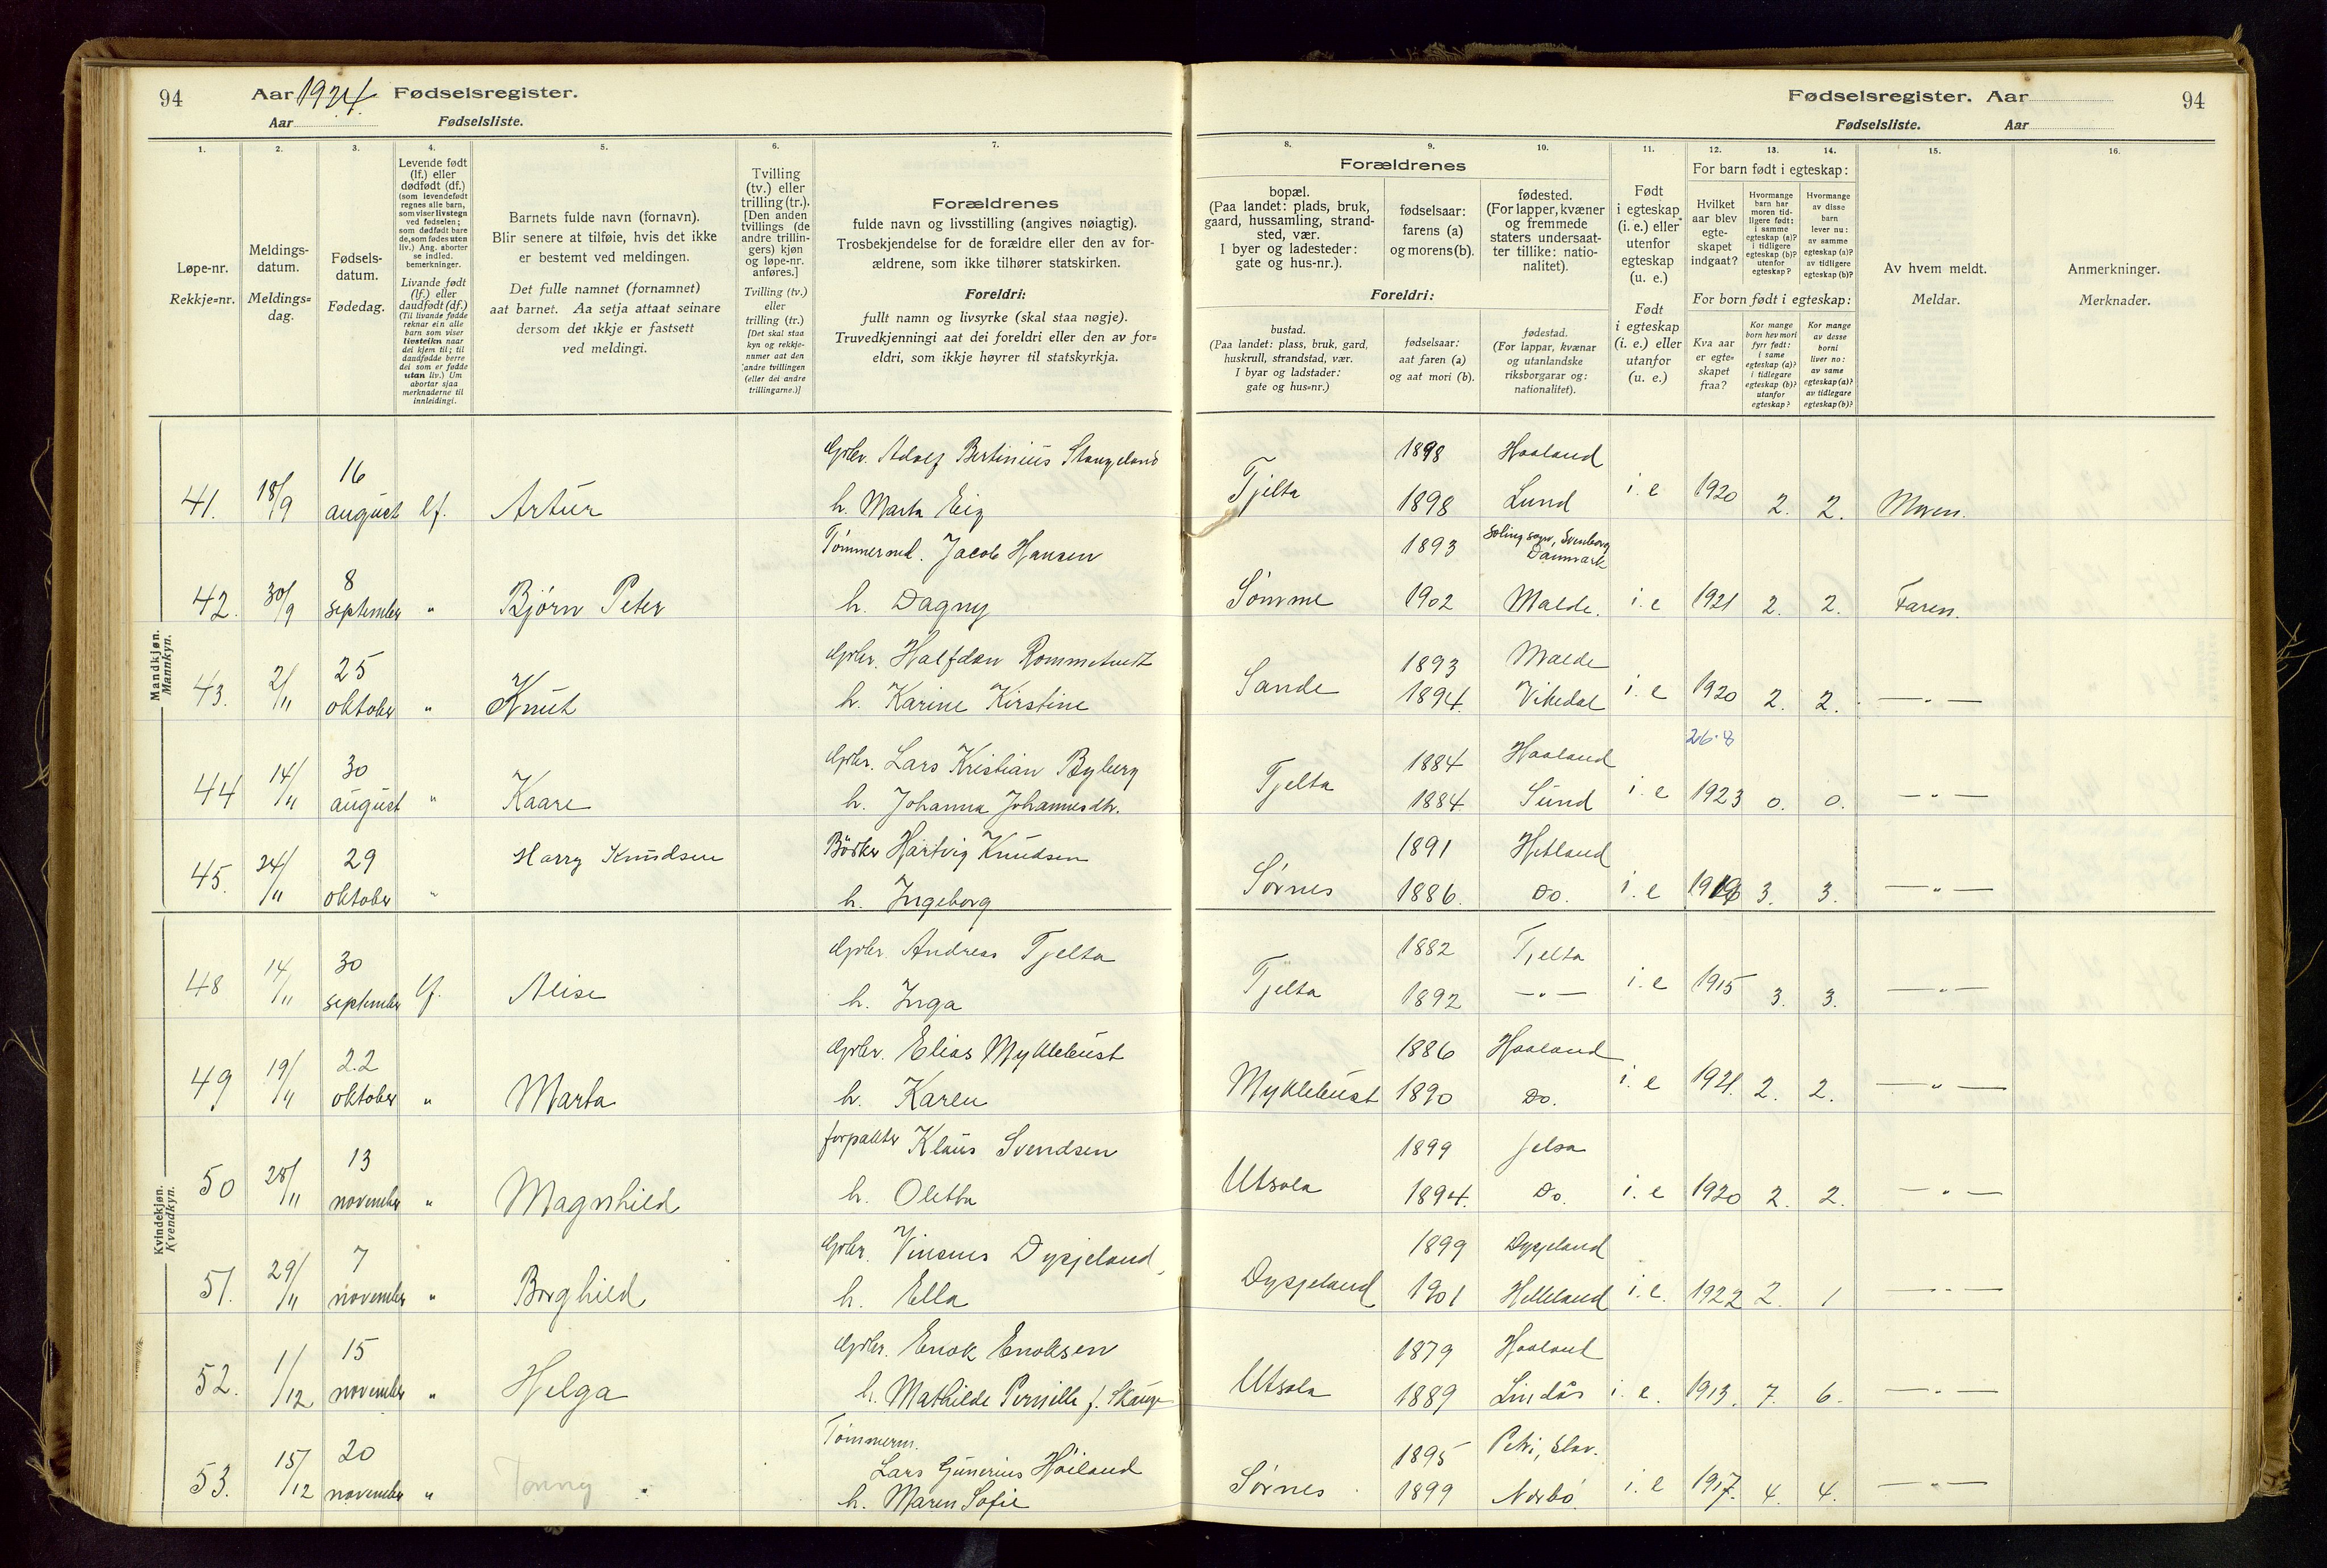 94 Aar 1924. Fødselsregister.
Aar Fødselsliste.
Fødselsregister. Aar 94
Fødselsliste. Aar
1. 2. 3. 4. 5. 6. 7. 8. 9. 10. 11. 12. 13. 14. 15. 16.
Løpe-nr.
Rekkje=nr.
Meldings-
datum.
Meldings=
dag.
Fødsels-
datum.
Fødedag.
Levende født
(lf.) eller
dødfødt (df.)
(som levendefødt
regnes alle barn,
som viser livstegn
ved fødselen;
som dødfødt bare
de, som fødes uten
liv.) Ang. aborter
se indled.
bemerkninger.
Livande født
(lf.) eller
daudfødt (df.)
(Til livande fødde
reknar ein alle
barn som viser
livsteikn naar
dei kjem til; til
daudfødde berre
dei som er fødde
utan liv.) Um
abortar sjaa
merknaderne til
innleidingi.
Barnets fulde navn (fornavn).
Blir senere at tilføie, hvis det ikke
er bestemt ved meldingen.
Det fulle namnet (fornamnet)
aat barnet. Aa setja attaat seinare
dersom det ikkje er fastsett
ved meldingi.
Tvilling
(tv.) eller
trilling (tr.).
[Den anden
tvillings (de
andre trillin-
gers) kjøn
og løpe-nr.
anføres.]
Tvilling (tv.)
eller
trilling (tr.)
[Det skal staa
kyn og rekkje-
numer aat den
andre tvillingen
(eller dei andre
trillingarne.)]
Forældrenes
fulde navn og livsstilling (angives nøiagtig).
Trosbekjendelse for de forældre eller den av for-
ældrene, som ikke tilhører statskirken.
Foreldri:
fullt namn og livsyrke (skal staa nøgje).
Truvedkjenningi aat dei foreldri eller den av for=
eldri, som ikkje høyrer til statskyrkja.
Forældrenes
bopæl.
(Paa landet: plads, bruk,
gaard, hussamling, strand-
sted, vær.
I byer og ladesteder:
gate og hus-nr.).
fødselsaar:
farens (a)
og morens (b).
fødested.
(For lapper, kvæner
og fremmede
staters undersaat-
ter tillike: natio-
nalitet).
Foreldri:
bustad.
(Paa landet: plass, bruk, gard,
huskrull, strandstad, vær.
I byar og ladstader:
gate og hus=nr.)
fødselsaar:
aat faren (a)
og aat mori (b).
fødestad.
(For lappar, kvænar
og utanlandske
riksborgarar og:
nationalitet).
Født
i egteskap
(i. e.) eller
utenfor
egteskap
(u. e.)
Født
i egteskap
(i. e.) eller
utanfor
(u. e.)
For barn født i egteskap:
Hvilket
aar blev
egte-
skapet
indgaat?
Hvormange
barn har
moren tid-
ligere født:
i samme
egteskap (a)?
i tidligere
egteskap (b)?
utenfor
egteskap?
Hvormange
av disse
barn
lever nu:
av samme
egteskap (a)?
av tidligere
egteskap (b)?
For born født i egteskap:
Kva aar
er egte-
skapet
fraa?
Kor mange
born hev mori
fyrr født:
i same
egteskap (a)?
i tidlegare
egteskap (b)?
utanfor
egteskap?
Kor mange
av desse
borni
liver no:
av same
egteskap (a)?
av tidlegare
egteskap (b)?
Av hvem meldt.
Meldar.
Anmerkninger.
Merknader.
Mandkjøn.
Mannkyn.
16 Gbr. Adolf Bertinius Stangeland 1898 Haaland
41. 18/9 august lf. Artur h. Marta Eig Tjelta 1898 Lund i. e 1920 2. 2. Moren.
8 Tømmermd. Jacob Hansen 1893 Danmark
42. 30/9 september " Bjørn Peter h. Dagny Sømme 1902 Malde. i. e 1921 2. 2. Faren.
25 Gbr. Halfdan Rommetvedt 1893 Malde
43. 2/11 oktober " Knut h. Karine Kirstine Sande 1894. Vikedal i. e 1920 2. 2. — " —
30 Gbr. Lars Kristian Byberg 1884 Haaland 26.8
44 14/11 august " Kaare h. Johanna Johannesdtr. Tjelta 1884. Sund i. e 1923 0. 0. — " —
29 Harry Knudsen Bödker Hartvig Knudsen 1891 Hetland
45. 24/11 oktober " h. Ingeborg Sørnes 1886. Do. i. e 1916 3. 3. — " —
Kvindekjøn.
Kvendkyn.
30 Gbr. Andreas Tjelta 1882 Tjelta
48 14/11 september lf. Alise h. Inga Tjelta 1892 — " — i. e 1915 3. 3. — " —
22 Gbr. Elias Myklebust 1886 Haaland
49 19/11 oktober " Marta h. Karen Myklebust 1890 Do. i. e 1921. 2. 2. — " —
13 forpakter Klaus Svendsen 1899 Jelsa
50 28/11 november " Magnhild h. Oletta Utsola 1894. Do. i. e 1920 2. 2. — " —
7 Gbr. Vinsens Dysjeland, 1899 Dysjeland
51. 29/11 november " Borghild h. Ella Dysjeland 1901 Helleland i. e. 1922 2. 1 — " —
15 Gbr. Enok Enoksen 1879 Haaland
52. 1/12 november " Helga h. Mathilde Pernille f. Skauge Utsola 1889 Lindås i. e. 1913. 7. 6. — " —
20 Tømmerm. Lars Gunerius Høiland 1895 Petri, Stav.
53. 15/12 november " Tonny h. Maren Sofie Sørnes 1899 Nærbø i. e 1917. 4. 4. — " —